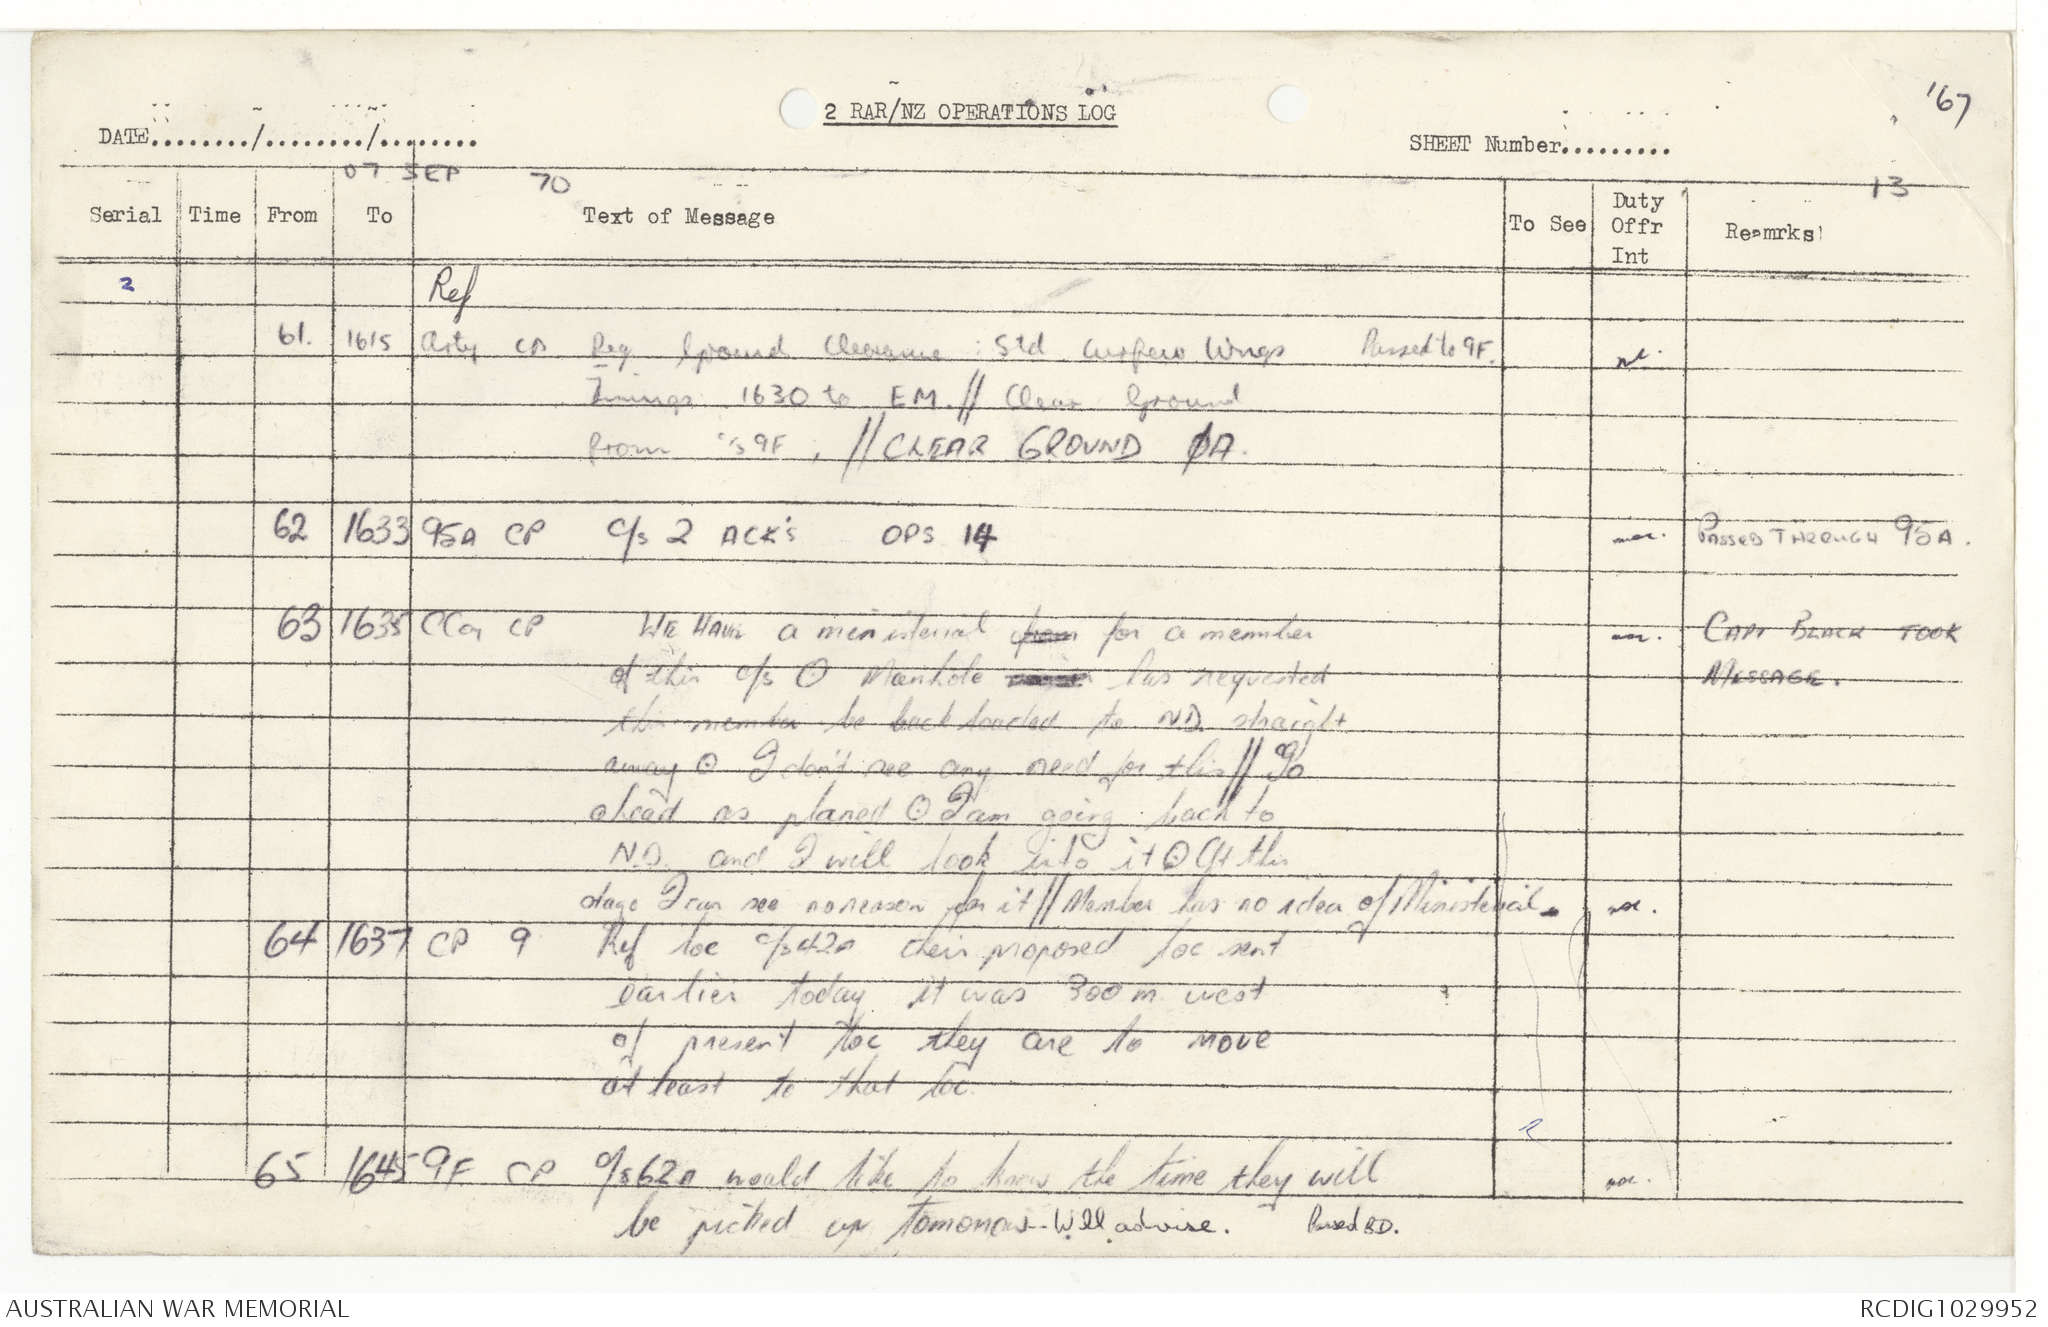 '67
2 RAR/NZ OPERATIONS LOG
DATE......../......../........
SHEET Number.........
07 SEP 70
13
Serial Time From To Text of Message To See Duty Offr Int Reamrks
2 Ref
61. 1615 Arty CP Req Ground Clearance : Std Wings Passed to 9F.
Timings 1630 to EM. // Clear Ground
from c/s 9F , // CLEAR GROUND ØA.
62 1633 95A CP C/s 2 ACK's OPS 14 PASSED THROUGH 95A.
63 1635 CCoy CP WE HAVE a ministerial for a member CAPT BLACK TOOK
of this c/s O Manhole has requested MESSAGE.
this member be back loaded to N.D. straight
away O I don't see any need for this // Go
ahead as planed O I am going back to
N.D. and I will look into it O At this
stage I can see no reason for it // Member has no idea of Ministerial.
64 1637 CP 9 Ref loc c/s 42A their proposed loc sent
earlier today it was 300m west
of present loc they are to move
at least to that loc.
65 1645 9F CP c/s 62A would like to know the time they will
be picked up tomorrow - Will advise. Passed BD.
AUSTRALIAN WAR MEMORIAL
RCDIG1029952